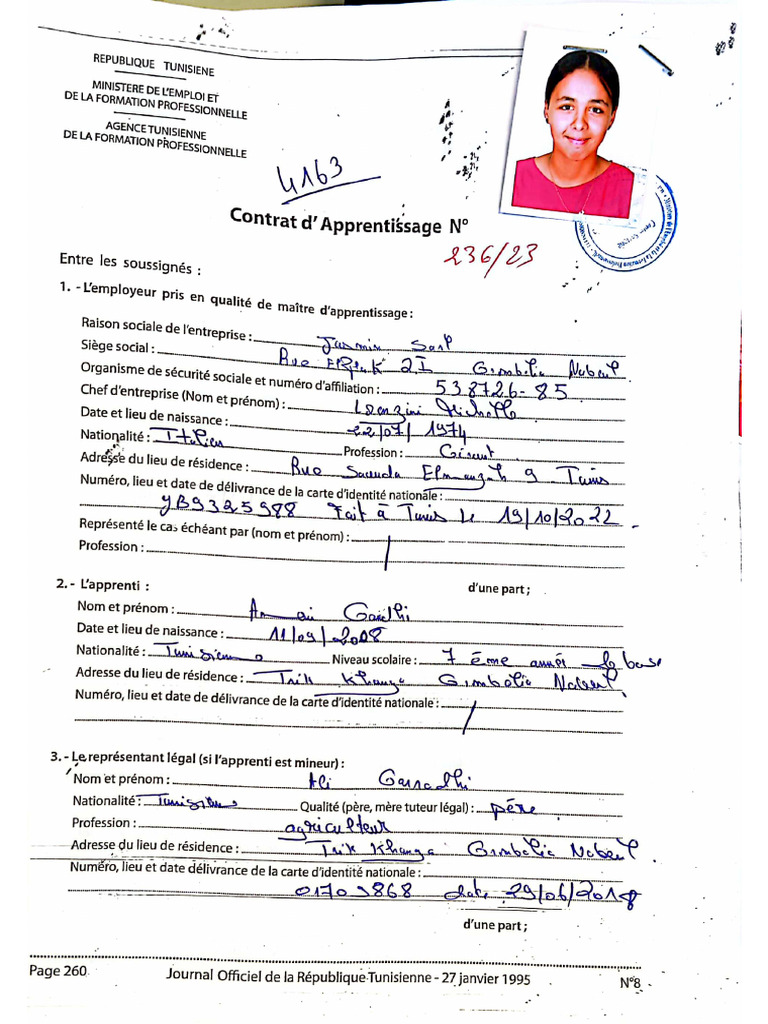 REPUBLIQUE TUNISIENE
MINISTERE DE L'EMPLOI ET
DE LA FORMATION PROFESSIONNELLE
AGENCE TUNISIENNE
DE LA FORMATION PROFESSIONNELLE
4163
Contrat d'Apprentissage N°
236/23
Entre les soussignés :
1. - L'employeur pris en qualité de maître d'apprentissage :
Raison sociale de l'entreprise : Jasmin Sarl
Siège social : Rue 2I Grombalia Nabeul
Organisme de sécurité sociale et numéro d'affiliation : 538726-85
Chef d'entreprise (Nom et prénom) : Lorenzini
Date et lieu de naissance : 22/07/1974
Nationalité : Italien Profession : Gérant
Adresse du lieu de résidence : Rue Elmanzah 9 Tunis
Numéro, lieu et date de délivrance de la carte d'identité nationale :
YB9325988 Fait à Tunis Le 19/10/2022
Représenté le cas échéant par (nom et prénom) : /
Profession :
2. - L'apprenti : d'une part ;
Nom et prénom :
Date et lieu de naissance : 11/09/2008
Nationalité : Tunisienne Niveau scolaire : 7 ème année de base
Adresse du lieu de résidence : Trik Khanga Grombalia Nabeul
Numéro, lieu et date de délivrance de la carte d'identité nationale : /
3. - Le représentant légal (si l'apprenti est mineur) :
Nom et prénom : Ali
Nationalité : Tunisienne Qualité (père, mère tuteur légal) : père
Profession : agriculteur
Adresse du lieu de résidence : Trik Khanga Grombalia Nabeul
Numéro, lieu et date délivrance de la carte d'identité nationale :
01709868 date 29/06/2018
d'une part ;
Page 260 Journal Officiel de la République Tunisienne - 27 janvier 1995 N°8